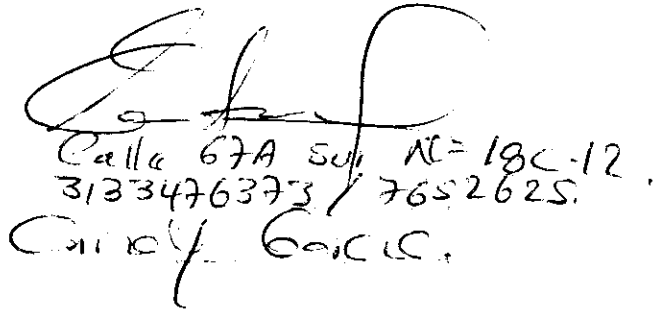 Calle 67A Sur N= 18C-12.
3133476373 / 7652625.
Garcia.